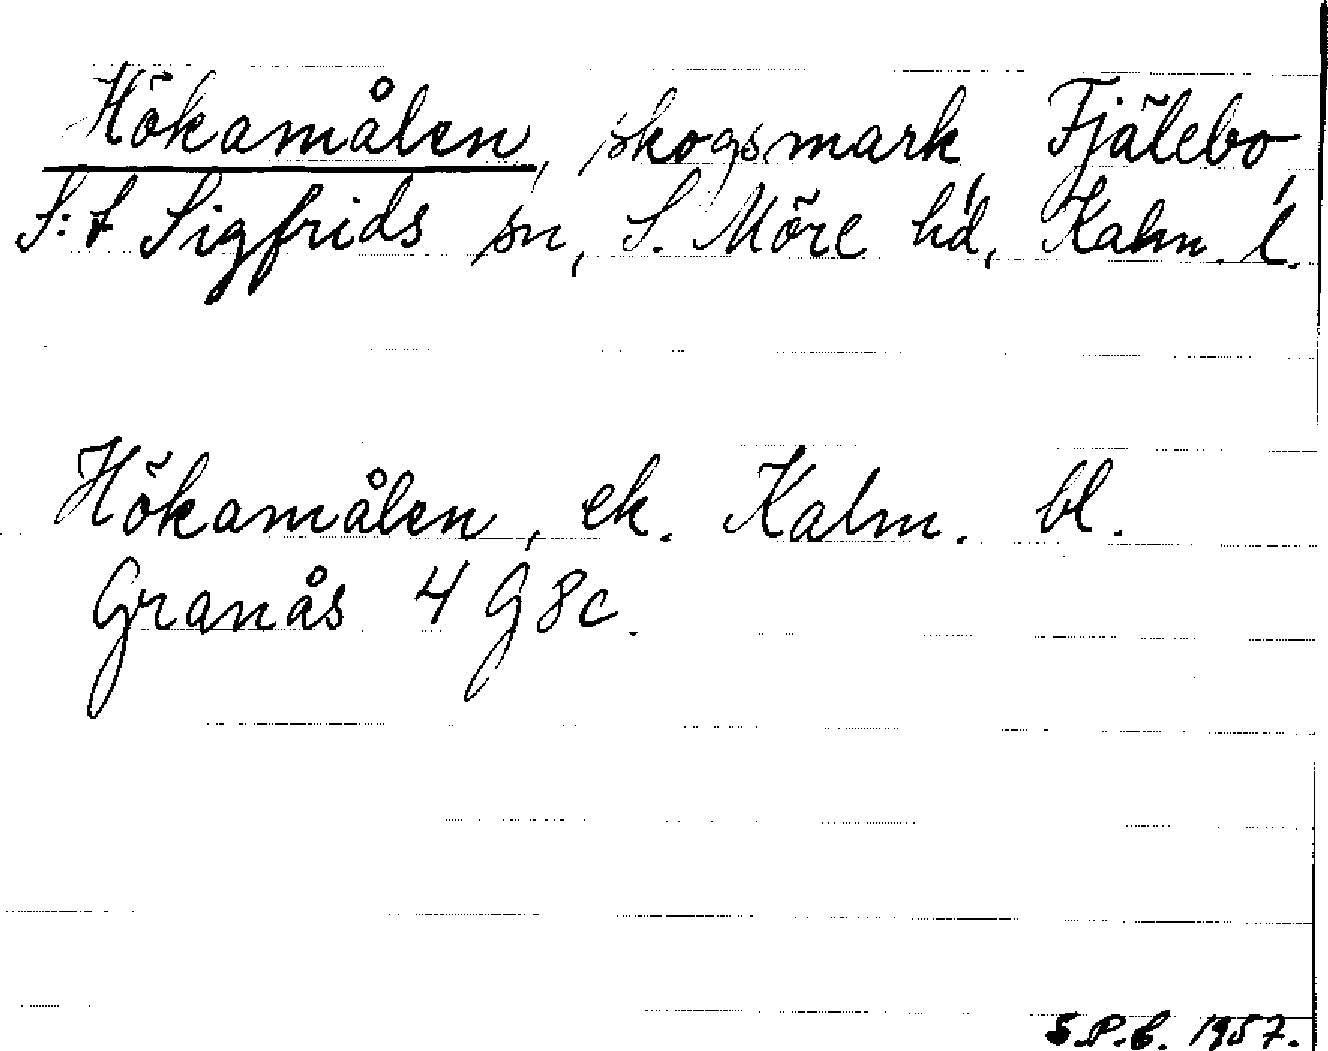 Hökamålen, skogsmark, Fjälebo,
S:t Sigfrids sn, S. Möre hd, Kalm. l.
Hökamålen, ek. Kalm. bl.
Granås 4 G 8c.
S.P.B. 1957.